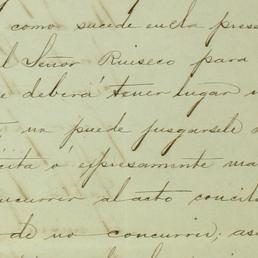 como sucede en la prese
l Señor Ruiseco para
e deberá tener lugar
no puede jusgarsele
cita ó espresamente ma
currir al acto concili
de no concurrir; asi